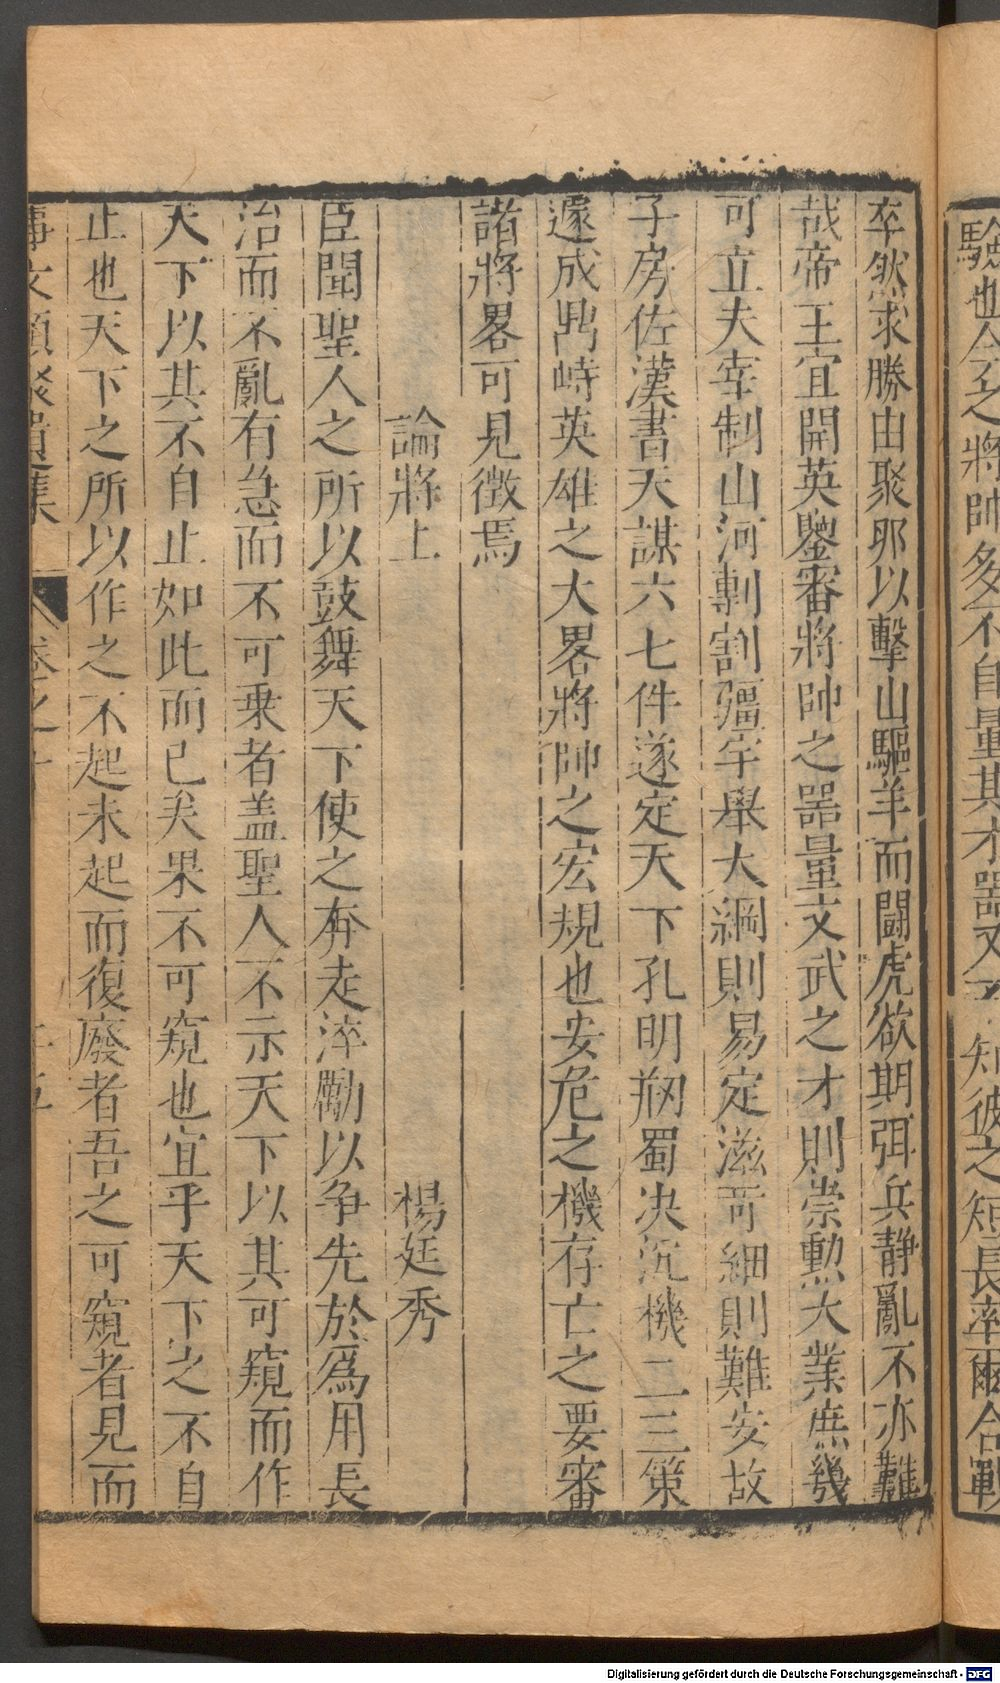 驗也今之將帥多不自量其才器又不知彼之短長率爾合戰
卒然求勝由聚卵以擊山驅羊而鬪虎欲期弭兵靜亂不亦難
哉帝王宜開英鑒審將帥之器量文武之才則崇勲大業庶幾
可立夫幸制山河剸割疆宇舉大綱則易定滋可細則難安故
子房佐漢書天謀六七件遂定天下孔明翔蜀决沉機二三策
遽成鼎峙英雄之大畧將帥之宏規也安危之機存亡之要審
諸將畧可見徵焉
論將上 楊廷秀
臣聞聖人之所以鼓舞天下使之奔走淬勵以争先於爲用長
治而不亂有急而不可乗者盖聖人不示天下以其可窺而作
天下以其不自止如此而已矣果不可窺也宜乎天下之不自
止也天下之所以作之不起未起而復廢者吾之可窺者見而
事文類聚遺集 卷之十 十五
Digitalisierung gefördert durch die Deutsche Forschungsgemeinschaft - DFG